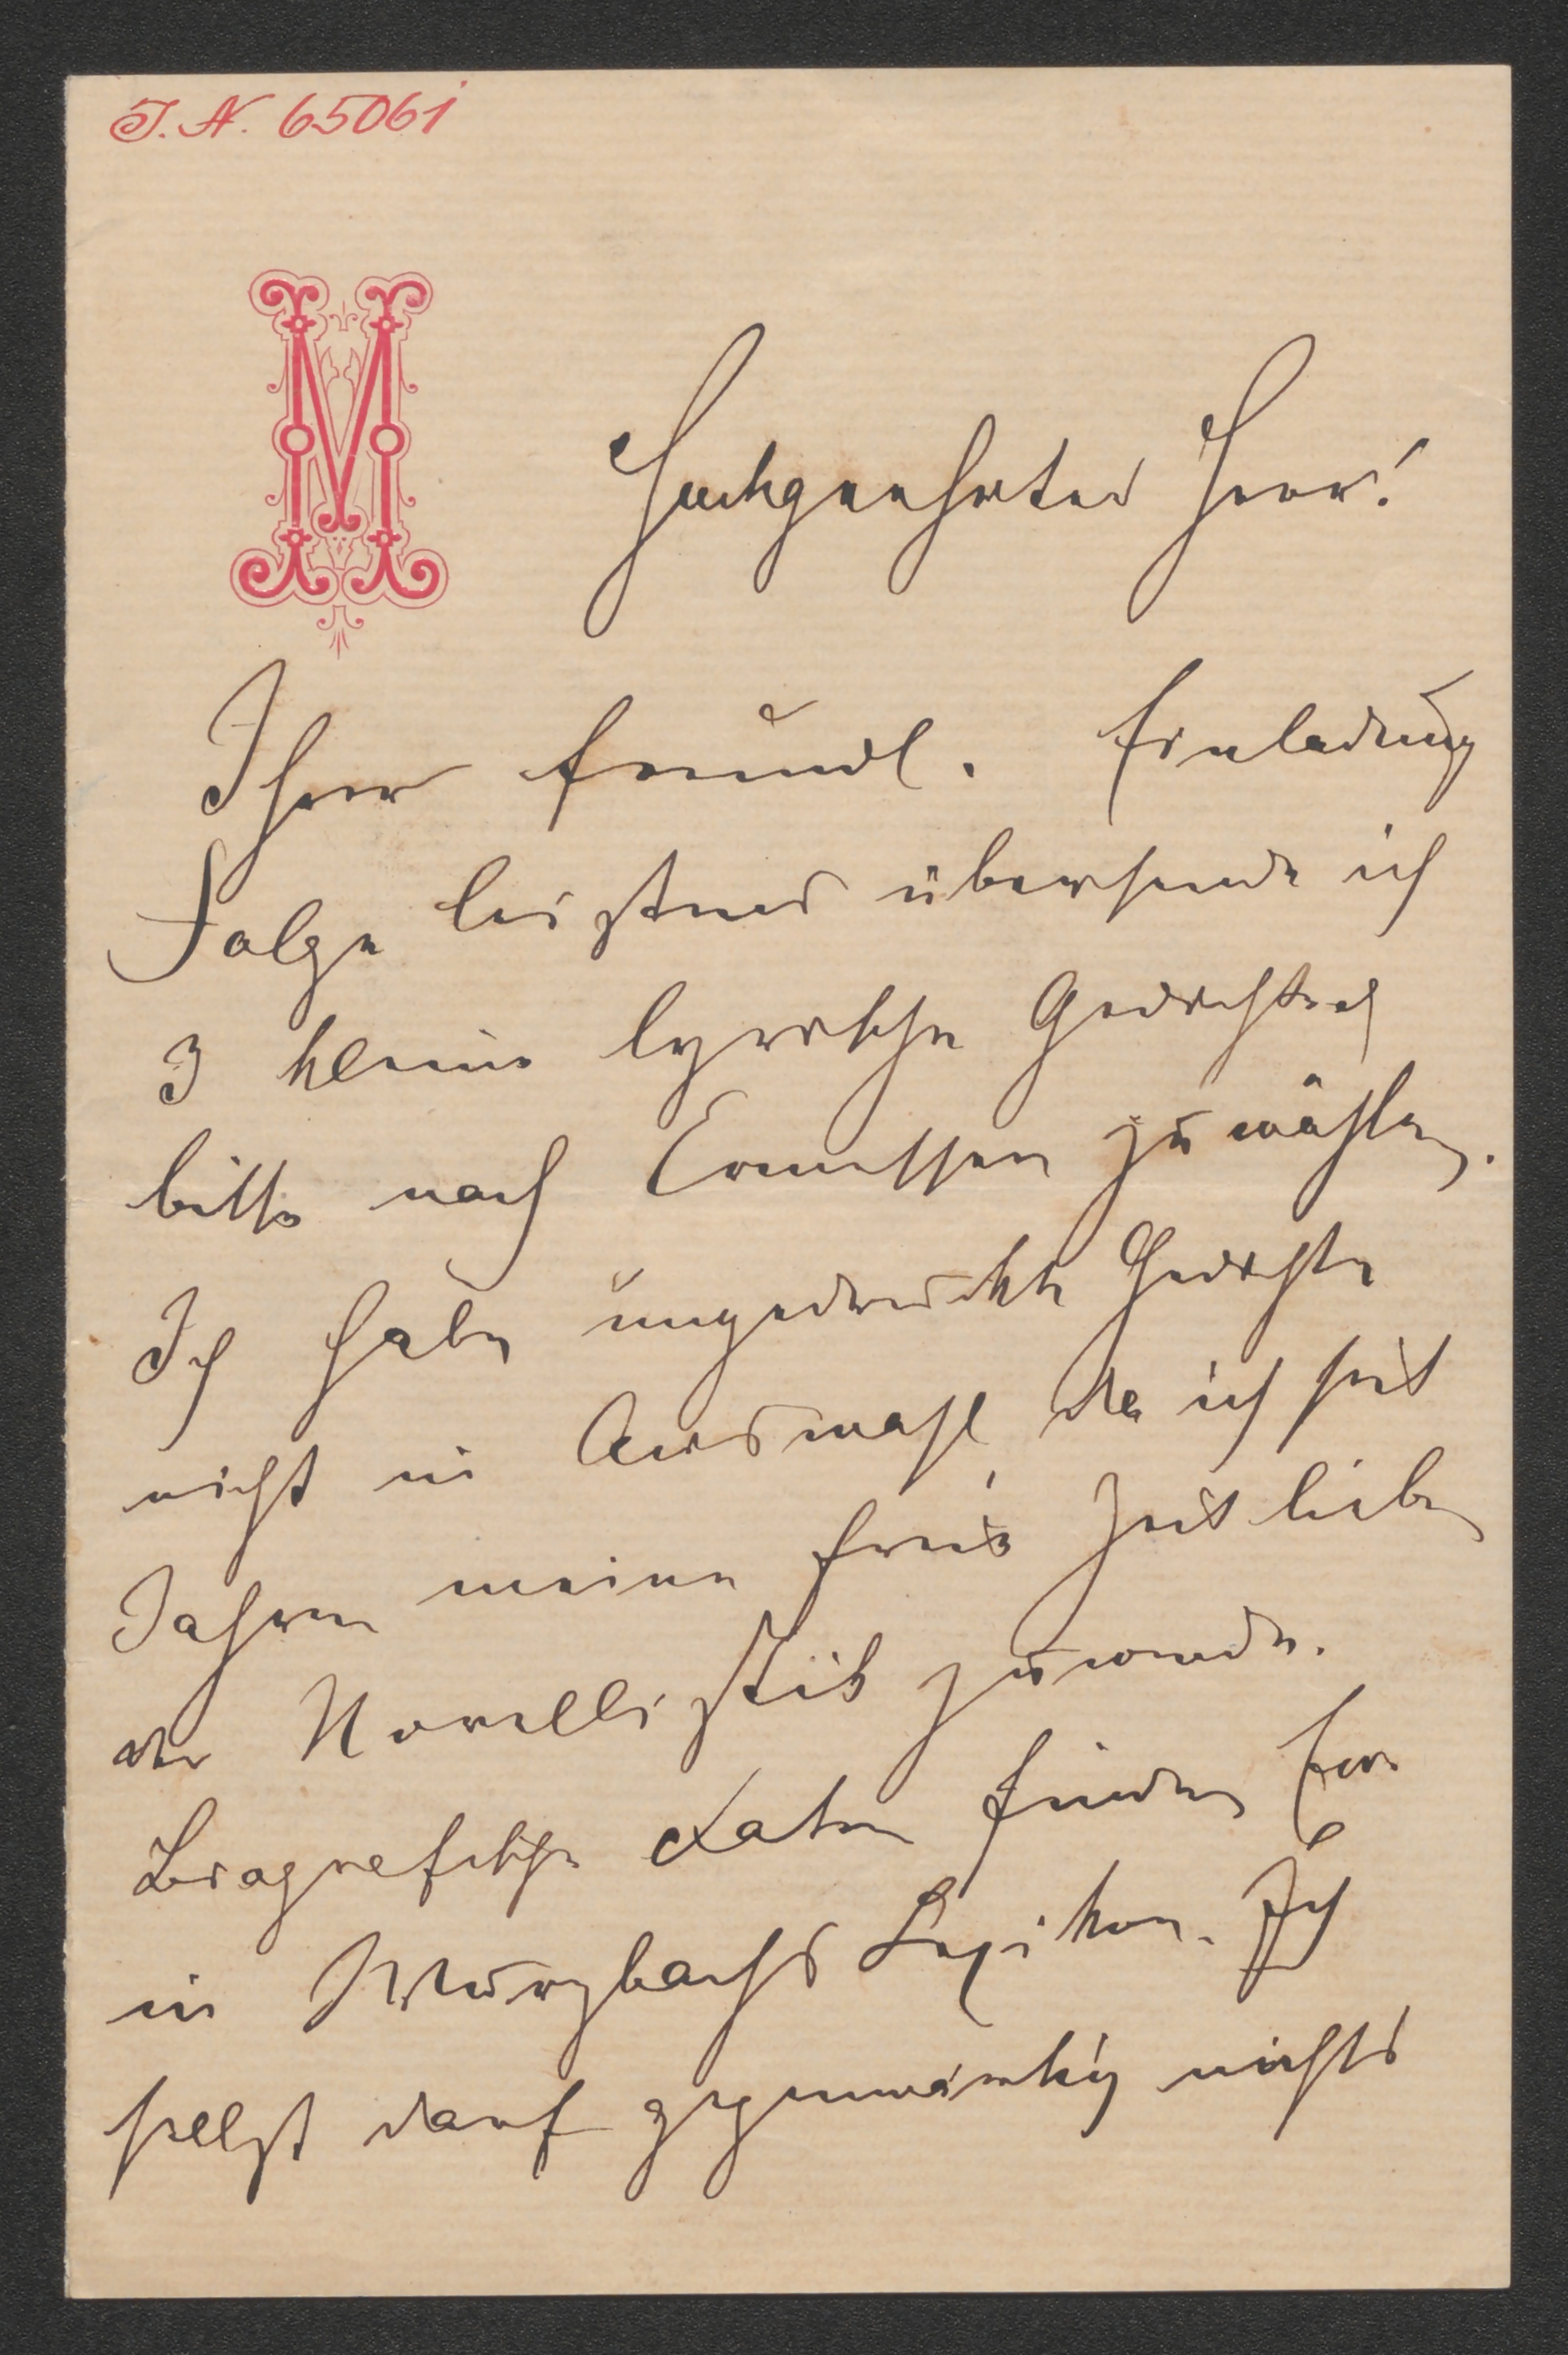 I. N. 65061
M
Hochgeehrter Herr!
Ihrer freundl. Einladung
Folge leistend übersende ich
3 kleine lyrische Gedichte u
bitte nach Ermessen zu wählen.
Ich habe ungedruckte Gedichte
nicht in Auswahl, da ich seit
Jahren meine freie Zeit lieber
der Novellistik zuwende.
Biografische Daten finden Euer
in Wurzbachs Lexikon. Ich
selbst darf gegenwärtig nichts